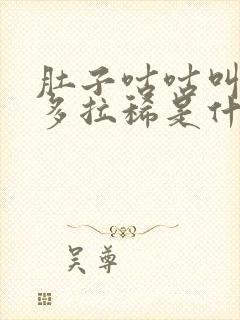 肚子咕咕叫
多拉稀是什
吴尊